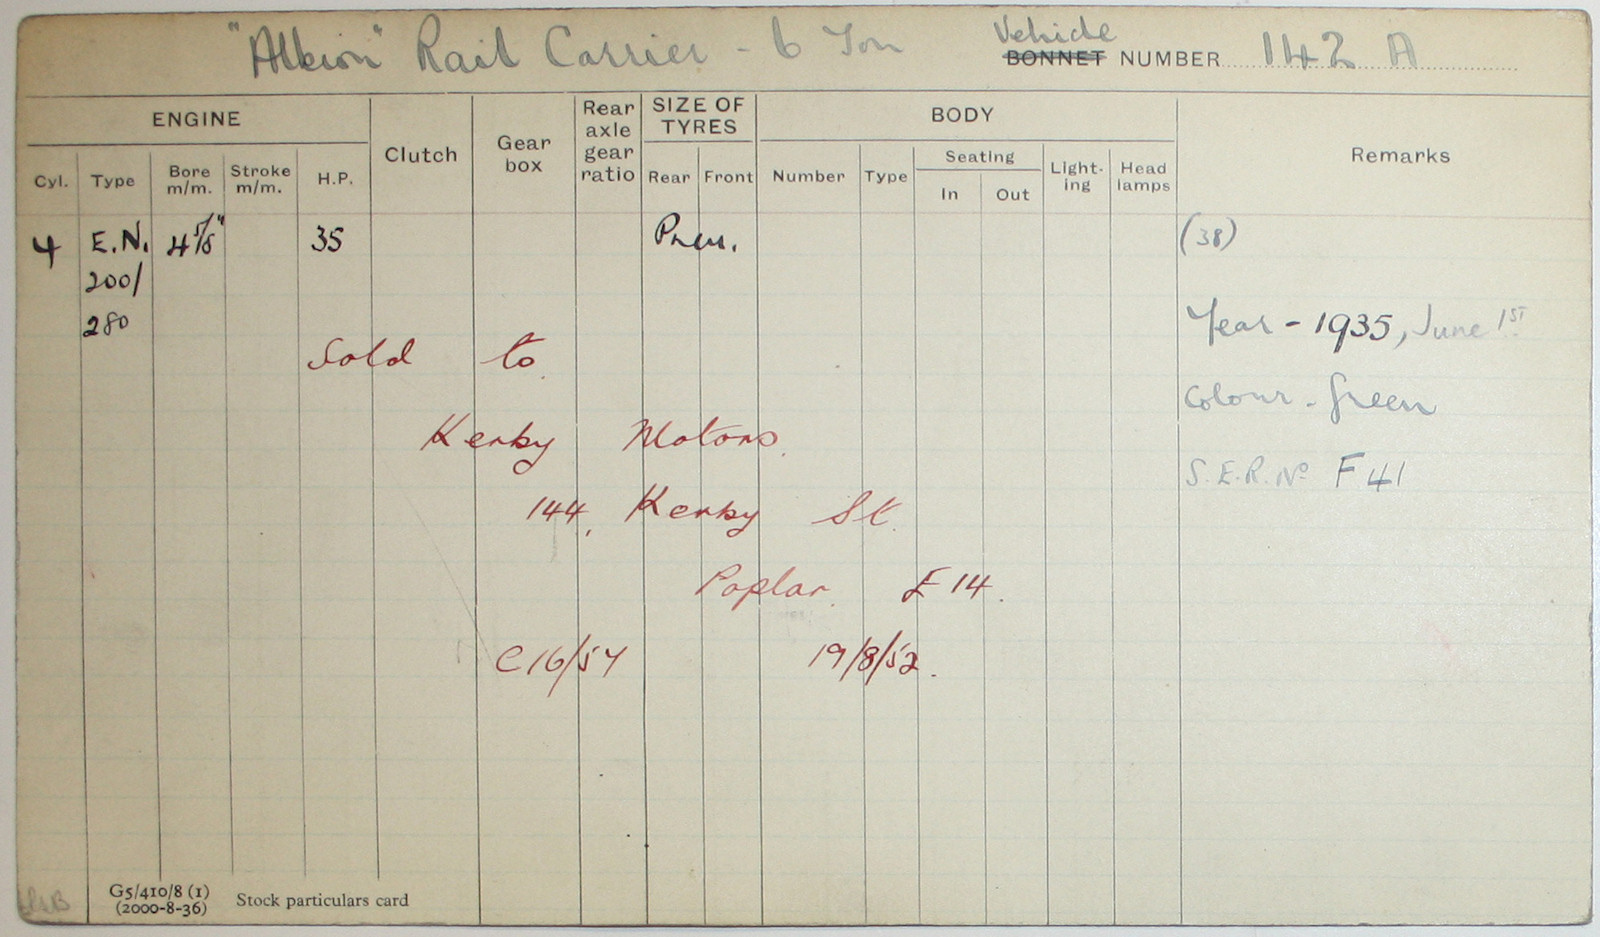 "Albion" Rail Carrier - 6 Ton
Vehicle
BONNET NUMBER 142 A
ENGINE
Clutch
Gear box
Rear axle gear ratio
SIZE OF TYRES
BODY
Remarks
Cyl. Type Bore m/m. Stroke m/m. H.P.
Rear Front
Number Type Seating
In Out
Light-ing
Head lamps
4 E.N. 4 5/8" 35 Pneu. (38)
200/
280
Year - 1935, June 1ST
Sold to
Colour - Green
Kerby Motors.
S.E.R. No F41
144, Kerby St.
Poplar. E14.
C16/54 19/8/52.
G5/410/8 (1)
(2000-8-36)
Stock particulars card